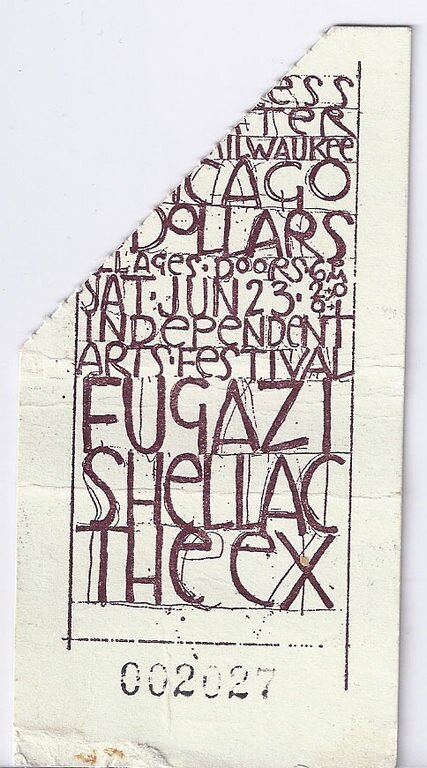 ess
ter
milwaukee
icago
Dollars
ll ages. Doors. 6PM
Sat. Jun 23. 2001
independent
arts. festival
Fugazi
Shellac
the ex
002027